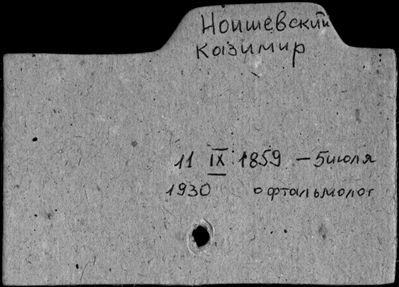 Ноишевский
Казимир
11 IX 1859 – 5 июля
1930 офтальмолог